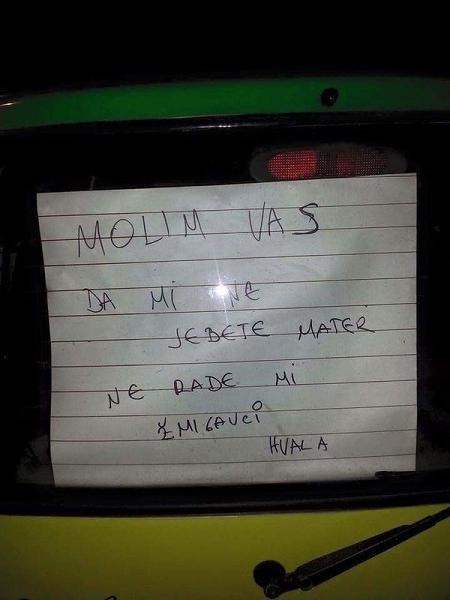 MOLIM VAS
DA MI NE
JEBETE MATER
NE RADE MI
ŽMIGAVCI
HVALA